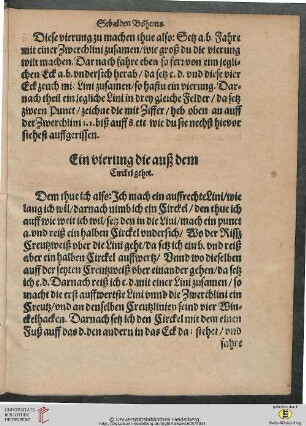 Sebalden Böhems.
Diese vierung zu machen thue also: Setz a.b. Fahre
mit einer Zwerchlini zusamen/wie groß du die vierung
wilt machen. Darnach fahre eben so fer: von ein jegli-
chen Eck a.b. vndersich herab/da setz c.d. vnd diese vier
Eck zeuch mit Lini zusamen/so hastu ein vierung. Dar-
nach theil ein jegliche Lini in drey gleiche Felder/da setz
zween Punct/zeichne die mit Ziffer/heb oben an auff
der Zwerchlini 1.2. biß auff 8. etc. wie du sie nechst hievor
stehest auffgerissen.
Ein vierung die auß dem
Circkel gehet.
Dem thue ich also: Ich mach ein auffrechte Lini/wie
lang ich wil/darnach nimb ich ein Circkel/den thue ich
auff wie weit ich wil/setz den in die Lini/mach ein punct
a. vnd reiß ein halben Circkel vndersich/Wo der Riß
Creutzweiß vber die Lini geht/da setz ich ein b. vnd reiß
aber ein halben Circkel auffwertz/Vnnd wo dieselben
auff der seyten Creutzweiß vber einander gehen/da setz
ich c.d. Darnach reiß ich c.d. mit einer Lini zusamen/so
macht die erst auffwertste Lini vnnd die Zwerchlini ein
Creutz/vnd an denselben Creutzlinien seind vier Win-
ckelhacken. Darnach setz ich den Circkel mit dem einen
Fuß auff das d. den andern in das Eck da: stehet/vnd
fahre
Universitätsbibliothek Heidelberg